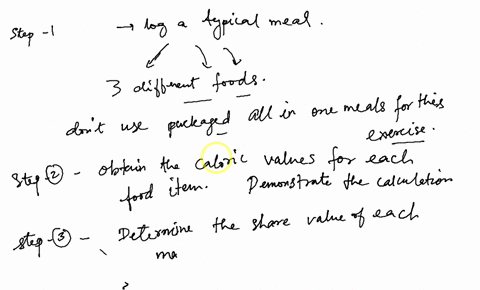 Step -1 → log a typical meal.
3 different foods.
don't use packaged all in one meals for this
exercise.
Step ② - obtain the caloric values for each
food item. Demonstrate the calculation
Step ③ - Determine the share value of each
ma